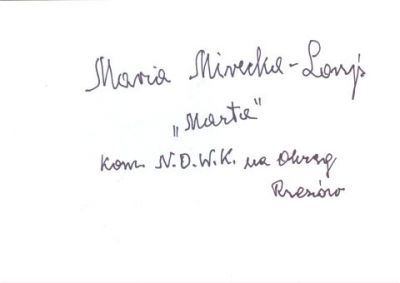 Maria Mirecka-Loryś
„Marta"
kom. N.O.W.K. na Okręg
Rzeszów